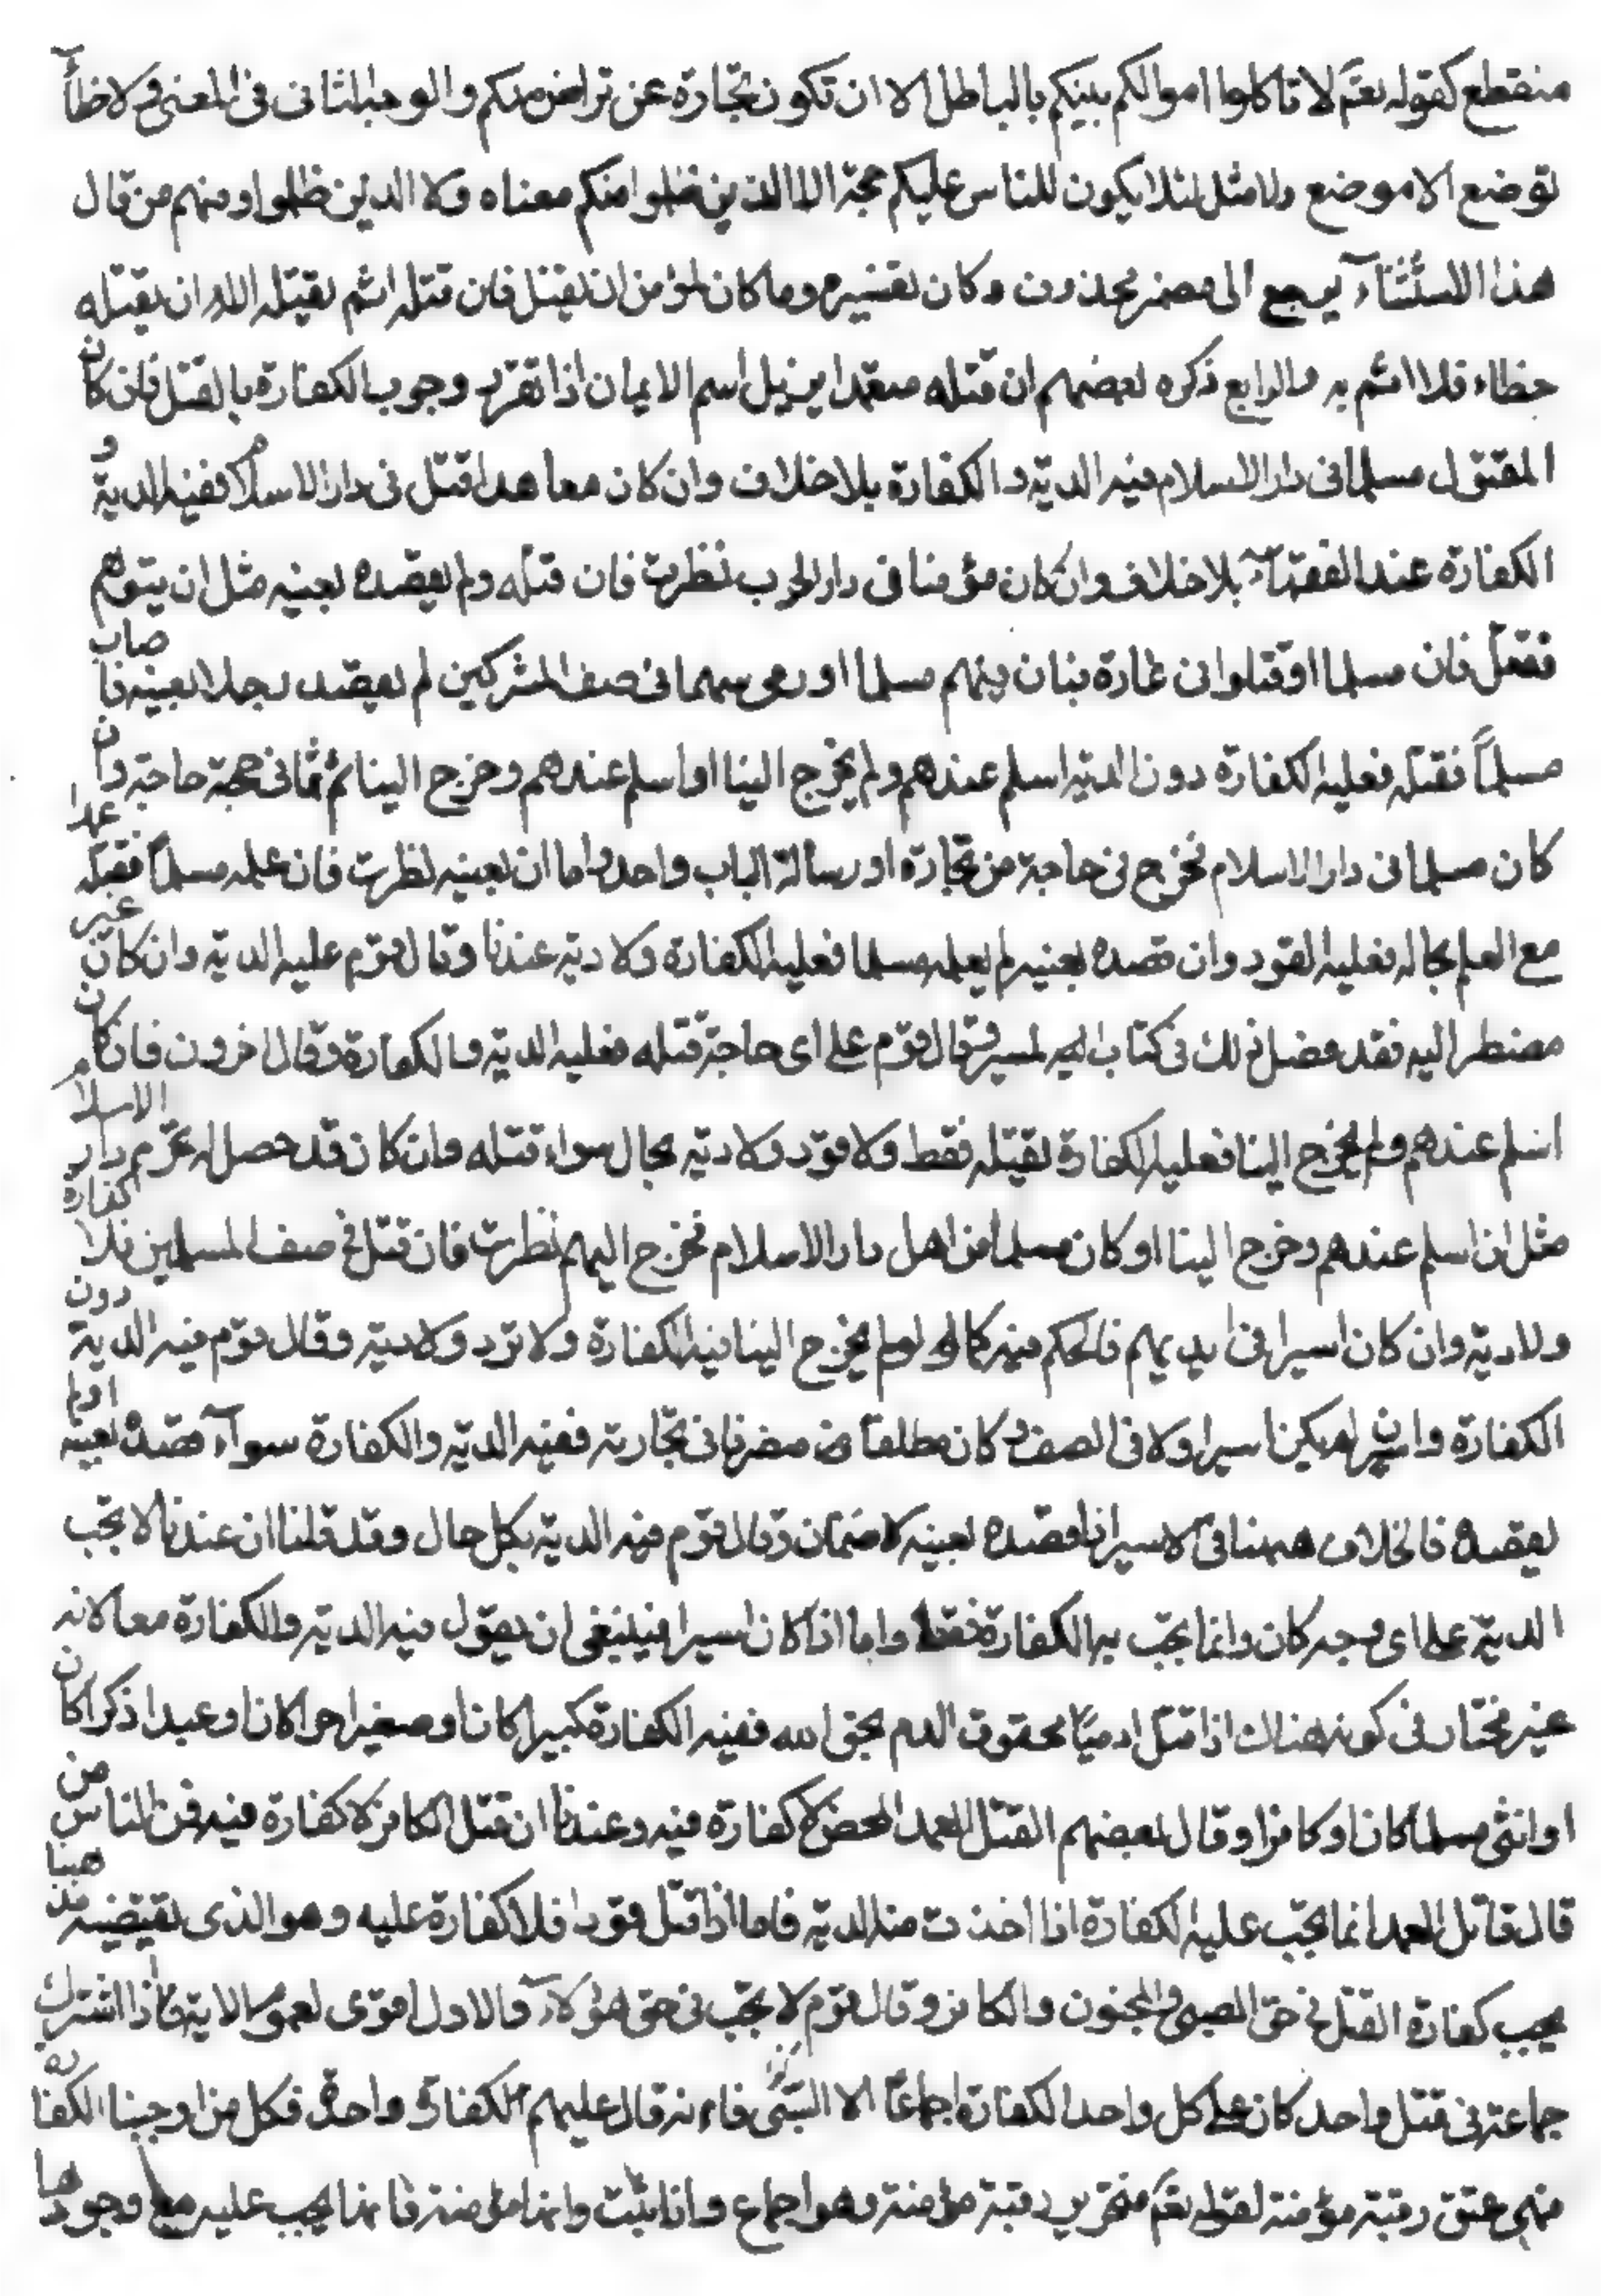 منقطع كقوله تعم لا تاكلوا اموالكم بينكم بالباطل الا ان تكون تجارة عن تراض منكم والوجه الثانى فى المعنى ولا خطأ
توضع الا موضع ولا مثل لئلا يكون للناس عليكم حجة الا الذين ظلموا منكم معناه ولا الذين ظلموا ومنهم من قال
هذا الاستثناء يرجع الى مضمر محذوف وكان تقديره وما كان لمؤمن ان يقتل فان قتله اثم بقتله الا ان يقتله
خطاء فلا اثم به والرابع ذكره بعضهم ان قتله متعمدا يزيل اسم الايمان اذا تقرر وجوب الكفارة بالقتل فان كان
المقتول مسلما فى دار الاسلام فيه الدية والكفارة بلا خلاف وان كان معاهدا قتل فى دار الاسلام ففيه الدية و
الكفارة عند الفقهآء بلا خلاف وان كان مؤمنا فى دار الحرب نظرت فان قتله ولم يقصده بعينه مثل ان يتوهم
فقتل فان مسلما او قتلوا فى غارة فبان فيهم مسلما او رمى سهما فى صف المشركين لم يقصد رجلا بعينه فاصاب
مسلماً فقتله فعليه الكفارة دون الدية اسلم عندهم ولم يخرج الينا او اسلم عندهم وخرج الينا ثم ثمانى حجة حاجة وان
كان مسلما فى دار الاسلام فخرج فى حاجة من تجارة او رسالة الباب واحد واما ان بعينه نظرت فان علمه مسلماً فقتله عمدا
مع العلم بحاله فعليه القود وان قصده بعينه لم يعلمه مسلما فعليه الكفارة ولا دية عندنا وقال قوم عليه الدية وان كان غير
مضطر اليه فقد فصل ذلك فى كتاب السير وقال قوم على اى حاجة قتله فعليه الدية والكفارة وقال اخرون فان كان
اسلم عندهم ولم يخرج الينا فعليه الكفارة بقتله فقط ولا قود ولا دية بحال سواء قتله وان كان قد حصل له تحرم دار الاسلام
مثل ان اسلم عندهم وخرج الينا او كان مسلما من اهل دار الاسلام فخرج اليهم نظرت فان قتل فى صف المسلمين فلا كفارة
ولا دية وان كان اسيرا فى ايديهم فالحكم فيه كما لو لم يخرج الينا فيه الكفارة ولا قود ولا دية وقال قوم فيه الدية دون
الكفارة وان لم يكن اسيرا ولا فى الصف و كان مطلقا متصرفا فى تجارته ففيه الدية والكفارة سوآء قصده بعينه اولم
يقصده فالخلاف ههنا فى الاسير اذا قصده بعينه لا ضمان وقال قوم فيه الدية بكل حال وقد قلنا ان عندنا لا تجب
الدية على اى وجه كان وانما يجب به الكفارة فقط واما اذا كان اسيرا فينبغى ان يقول فيه الدية والكفارة معا لانه
غير مختار فى كونه هناك اذا قتل ادميًا محقون الدم بحق الله ففيه الكفارة كبيرا كان او صغيرا حرا كان او عبدا ذكرا كان
او انثى مسلما كان او كافرا وقال بعضهم القتل العمد المحض لا كفارة فيه وعندنا ان قتل الكافر لا كفارة فيه فمن الناس من
قال قاتل العمد انما يجب عليه الكفارة اذا اخذت منه الدية فاما اذا قتل قودا فلا كفارة عليه وهو الذى يقتضيه مذهبنا
يجب كفارة القتل فى حق الصبى والمجنون والكافر وقال قوم لا يجب فى حق هؤلاء والاول اقوى لعموم الاية فاذا اشترك
جماعة فى قتل واحد كان على كل واحد الكفارة اجماعاً الا البتى فاءنه قال عليهم الكفارة واحدة فكل من اوجبنا الكفاره
فهى عتق رقبة مؤمنة لقوله تعم فتحرير رقبة مؤمنة وهو اجماع واذا ثبت وانها مؤمنة فانما يجب عليه مع وجودها